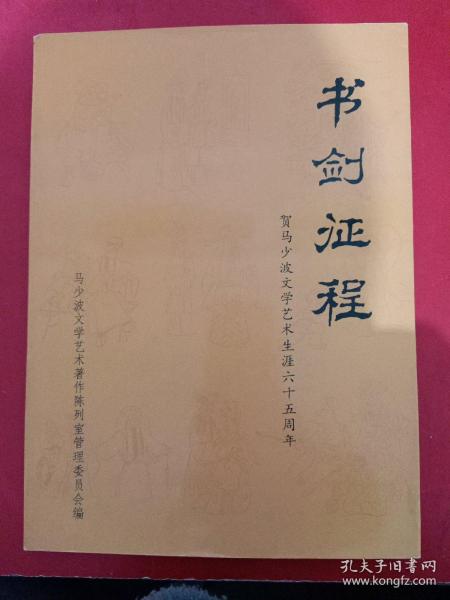 书剑征程
贺马少波文学艺术生涯六十五周年
马少波文学艺术著作陈列室管理委员会编
孔夫子旧书网
www.kongfz.com